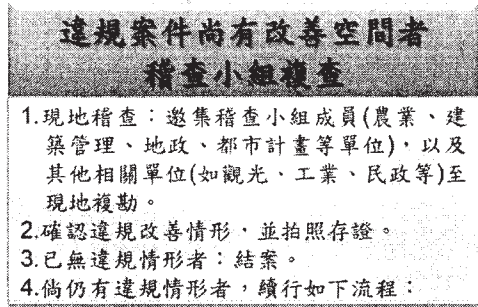 違規案件尚有改善空間者
稽查小組複查
1.現地稽查：邀集稽查小組成員(農業、建
築管理、地政、都市計畫等單位)，以及
其他相關單位(如觀光、工業、民政等)至
現地複勘。
2.確認違規改善情形，並拍照存證。
3.已無違規情形者：結案。
4.倘仍有違規情形者，續行如下流程：